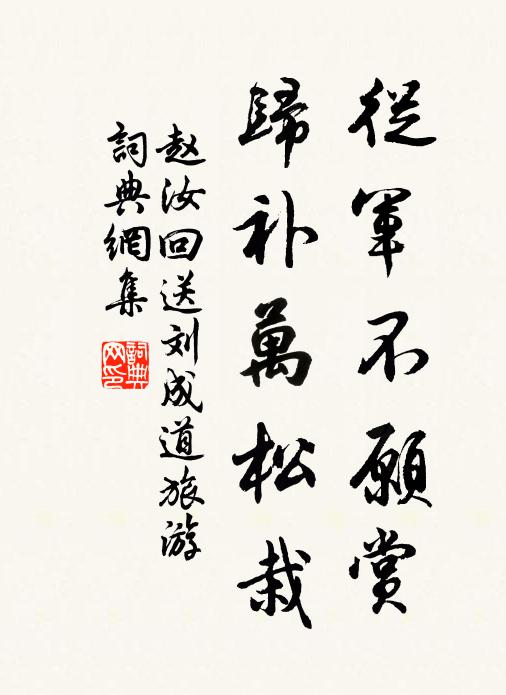 從軍不願賞
歸补萬松栽
赵汝回送刘成道旅游
詞典網集
詞典网印